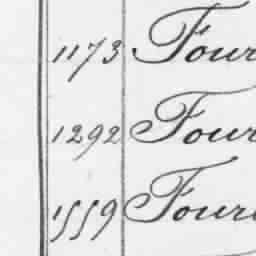 1173 Four
1292 Four
1559 Four